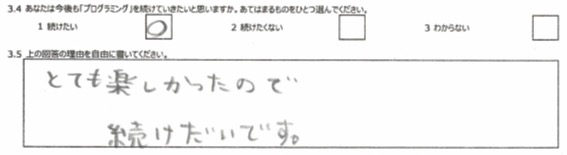 3.4 あなたは今後も「プログラミング」を続けていきたいと思いますか。あてはまるものをひとつ選んでください。
1 続けたい ○ 2 続けたくない 3 わからない
3.5 上の回答の理由を自由に書いてください。
とても楽しかったので
続けたいです。